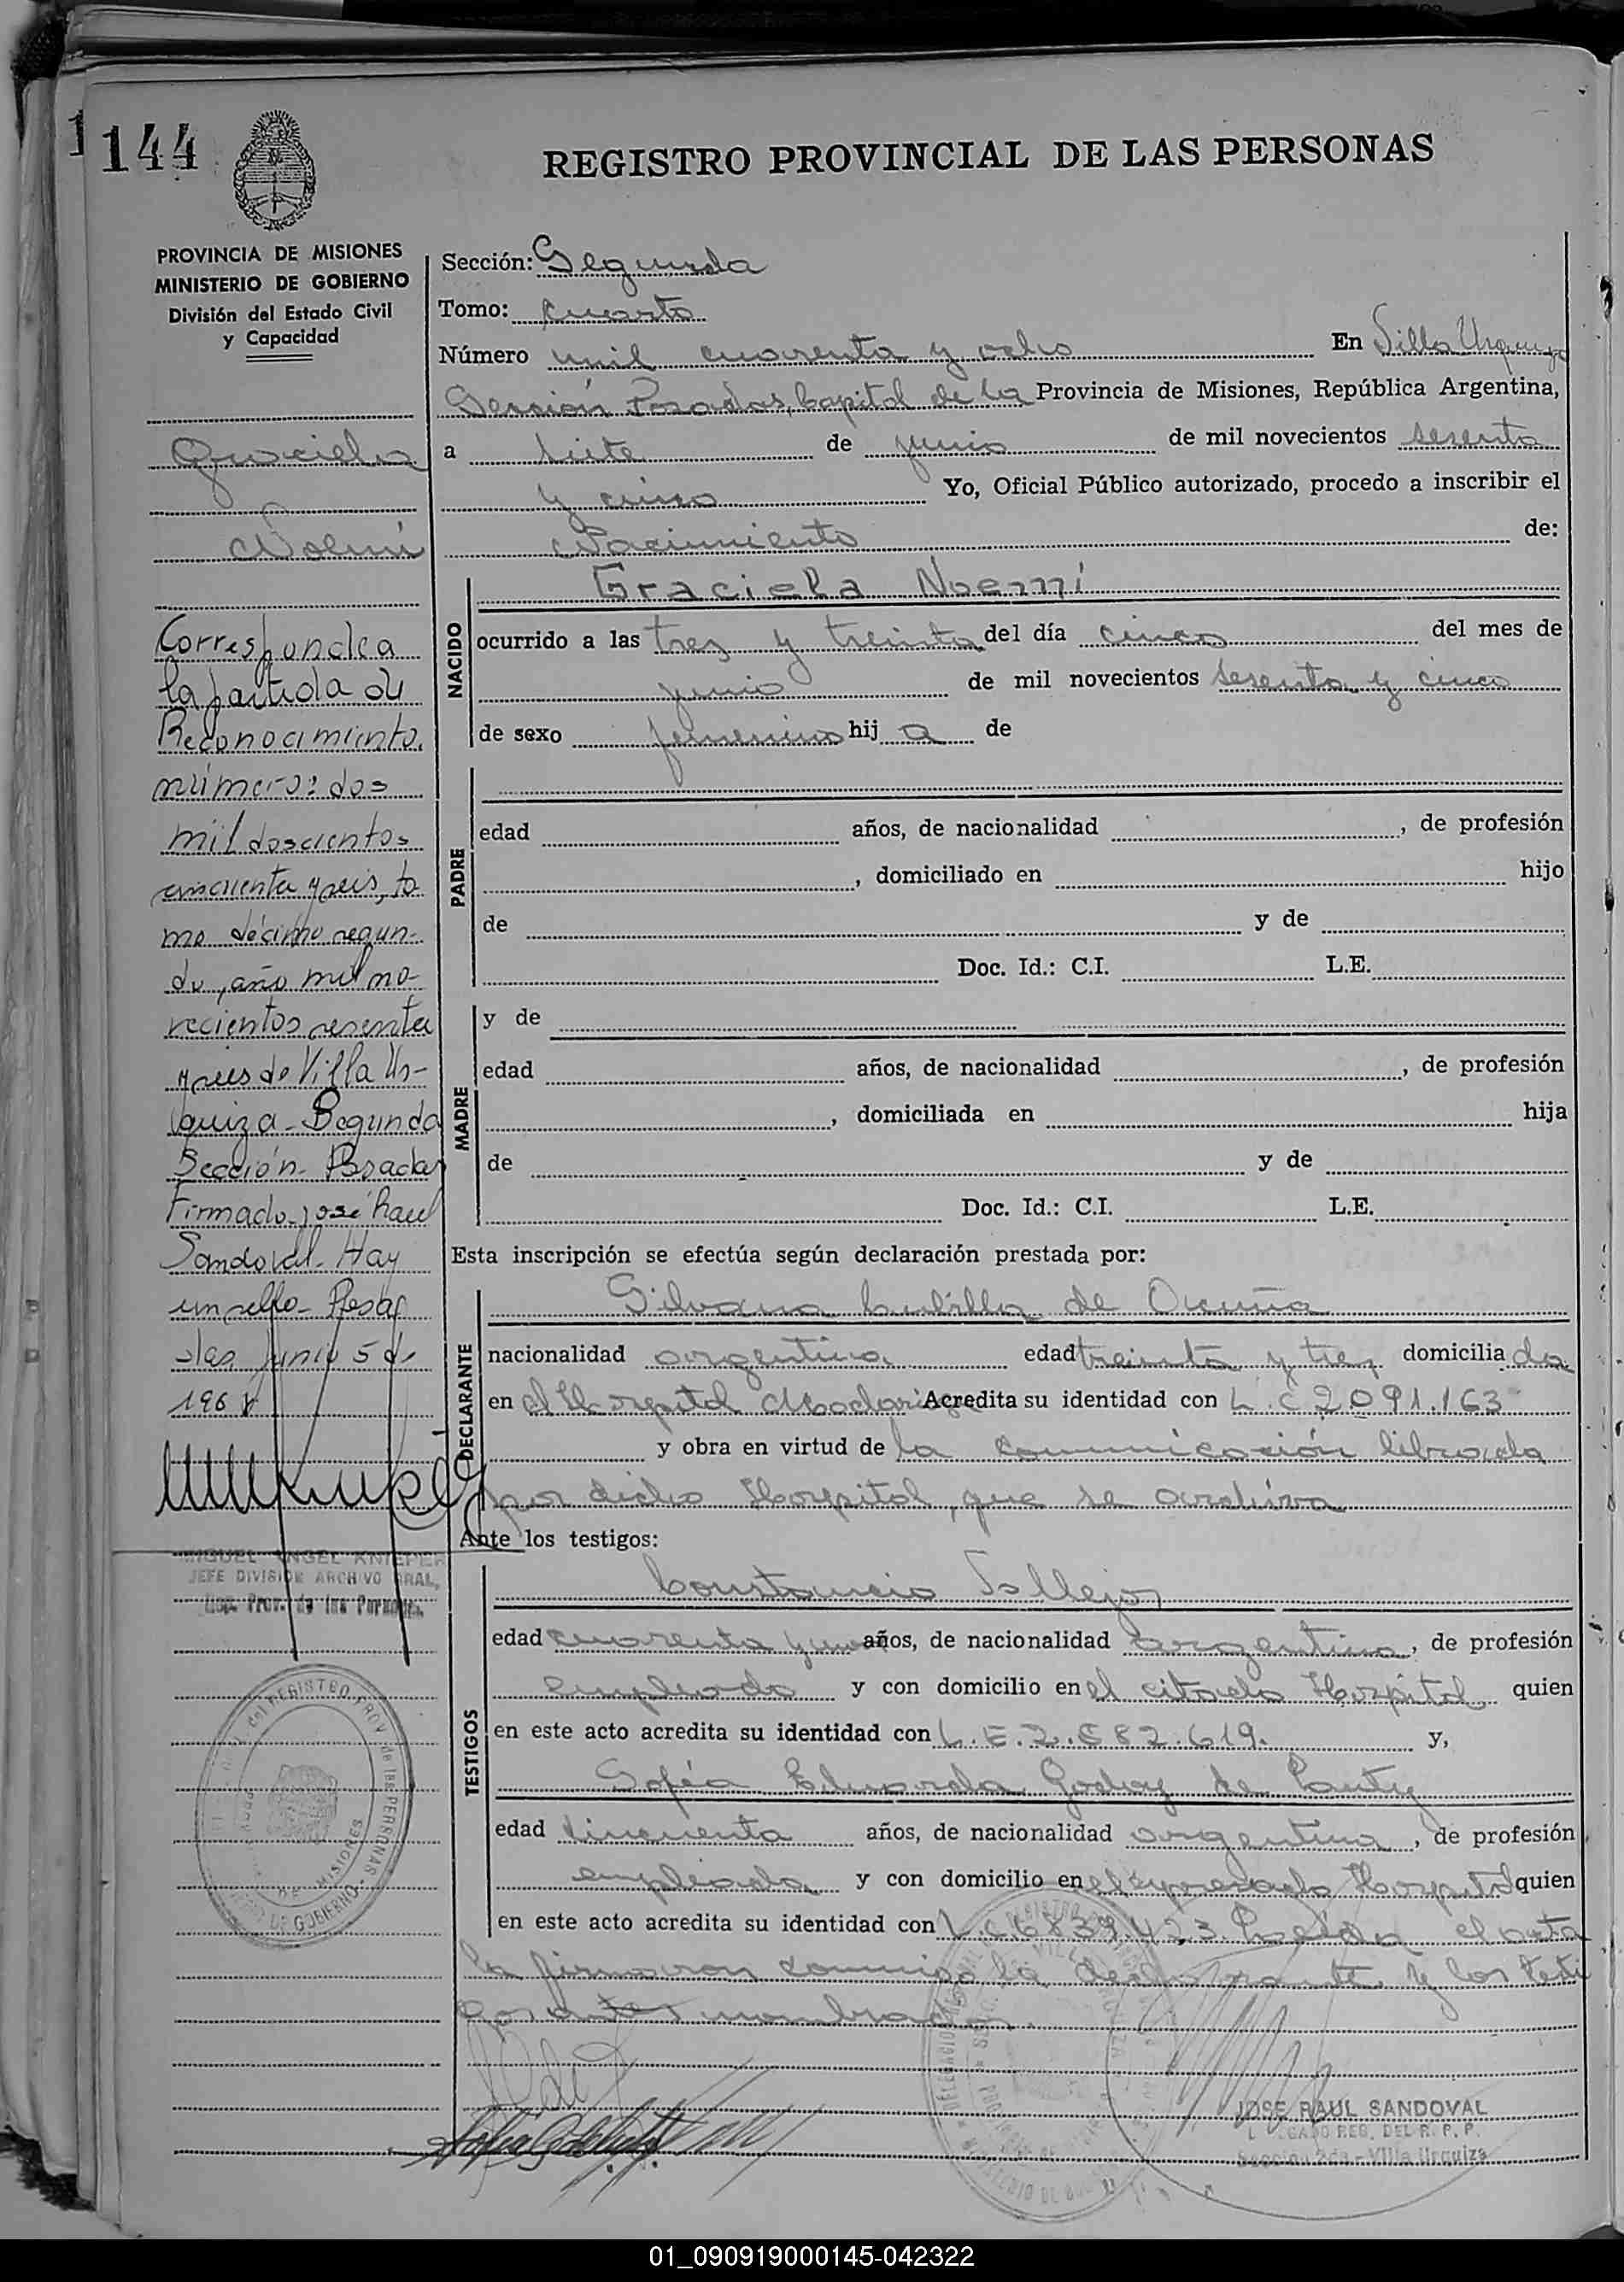 1144
REGISTRO PROVINCIAL DE LAS PERSONAS
PROVINCIA DE MISIONES
MINISTERIO DE GOBIERNO
División del Estado Civil
y Capacidad
Graciela
Noemí
Corresponde a
la partida de
Reconocimiento
número: dos
mil doscientos
cincuenta y seis, to-
mo décimo segun-
do, año mil no-
vecientos sesenta
y seis de Villa Ur-
quiza - Segunda
Sección - Posadas
Firmado - José Raul
Sandoval - Hay
un sello - Posa-
das Junio 5 de
196
MIGUEL ANGEL KNIEPER
JEFE DIVISION ARCHIVO GRAL.
Reg. Prov. de las Personas
Sección: Segunda
Tomo: Cuarto
Número mil cuarenta y ocho En Villa Urquiza
Sección Posadas, Capital de la Provincia de Misiones, República Argentina,
a siete de junio de mil novecientos sesenta
y cinco Yo, Oficial Público autorizado, procedo a inscribir el
Nacimiento de:
NACIDO
Graciela Noemí
ocurrido a las tres y treinta del día cinco del mes de
junio de mil novecientos sesenta y cinco
de sexo femenino hij a de
PADRE
edad años, de nacionalidad , de profesión
, domiciliado en hijo
de y de
Doc. Id.: C.I. L.E.
MADRE
y de
edad años, de nacionalidad , de profesión
, domiciliada en hija
de y de
Doc. Id.: C.I. L.E.
Esta inscripción se efectúa según declaración prestada por:
DECLARANTE
Silvana Cubilla de Ocuña
nacionalidad argentina edad treinta y tres domicilia da
en el Hospital Madariaga Acredita su identidad con L.C 2091.163
y obra en virtud de la comunicación librada
por dicho Hospital, que se archiva
Ante los testigos:
TESTIGOS
Constancio Vallejos
edad cuarenta y un años, de nacionalidad argentino, de profesión
empleado y con domicilio en el citado Hospital, quien
en este acto acredita su identidad con L.E. 2.582.619. y,
Sofía Eduarda Godoy de
edad cincuenta años, de nacionalidad argentina, de profesión
empleada y con domicilio en el expresado Hospital quien
en este acto acredita su identidad con L.C.6839.423. Leída el acta
la firmaron conmigo la declarante y los testi
gos antes nombrados.
JOSE RAUL SANDOVAL
DEL R. P. P.
Sección 2da - Villa Urquiza
01_090919000145-042322